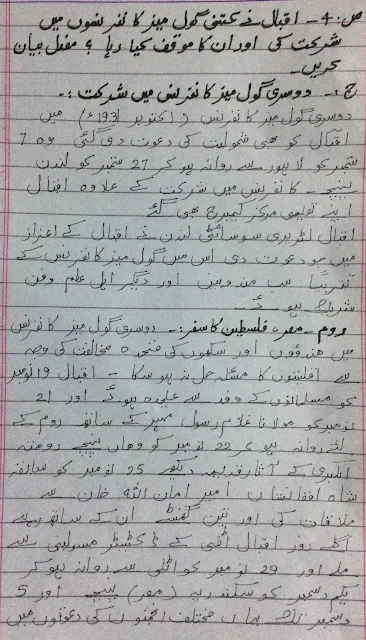 ص:4- اقبال نے کتنی گول میز کانفرنسوں میں
شرکت کی اور ان کا موقف کیا رہا؟ مفصل بیان
کریں۔
ج:- دوسری گول میز کانفرنس میں شرکت :-
دوسری گول میز کانفرنس (اکتوبر 1931ء) میں
اقبال کو بھی شمولیت کی دعوت دی گئی وہ 7
ستمبر کو لاہور سے روانہ ہو کر 27 ستمبر کو لندن
پہنچے۔ کانفرنس میں شرکت کے علاوہ اقبال
اپنے تعلیمی مرکز کیمبرج بھی گئے
اقبال لٹریری سوسائٹی لندن نے اقبال کے اعزاز
میں جو دعوت دی اس میں گول میز کانفرنس کے
تقریباً سب مندوبین اور دیگر اہل علم وفن
شریک ہوئے۔
روم - مصر، فلسطین کا سفر:- دوسری گول میز کانفرنس
میں ہندوؤں اور سکھوں کی متحدہ مخالفت کی وجہ
سے اقلیتوں کا مسئلہ حل نہ ہو سکا - اقبال 19 نومبر
کو مسلمانوں کے وفد سے علیحدہ ہوئے اور 21
نومبر کو مولانا غلام رسول مہر کے ساتھ روم کے
لئے روانہ ہو کر 22 نومبر کو وہاں پہنچے رومتہ
الکبریٰ کے آثار قدیمہ دیکھے 25 نومبر کو سابقہ
شاہ افغانستان امیر امان اللہ خان سے
ملاقات کی اور تین گھنٹے ان کے ساتھ رہے
اگلے روز اقبال اٹلی کے ڈکٹیٹر مسولینی سے
ملے اور 29 نومبر کو اٹلی سے روانہ ہو کر
یکم دسمبر کو سکندریہ (مصر) پہنچے اور 5
دسمبر تک یہاں مختلف انجمنوں کی دعوتوں میں